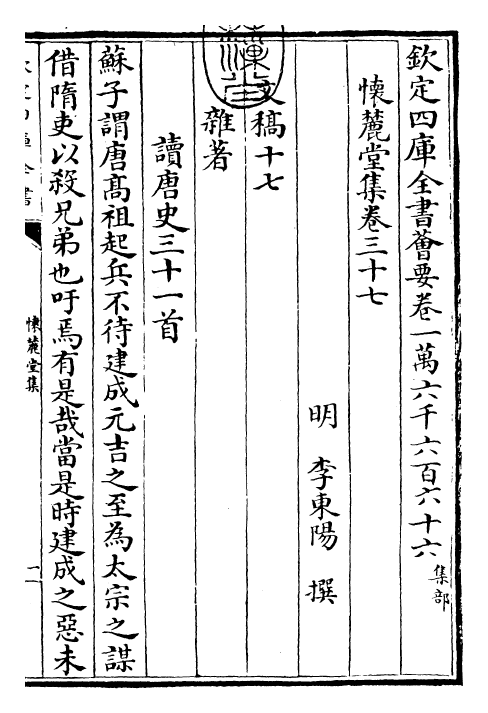 欽定四庫全書薈要卷一萬六千六百六十六
集部
懷麓堂集卷三十七
明 李東陽 撰
文稿十七
雜著
讀唐史三十一首
蘇子謂唐髙祖起兵不待建成元吉之至為太宗之謀
借隋吏以殺兄弟也吁焉有是哉當是時建成之惡未
懷麓堂集
一